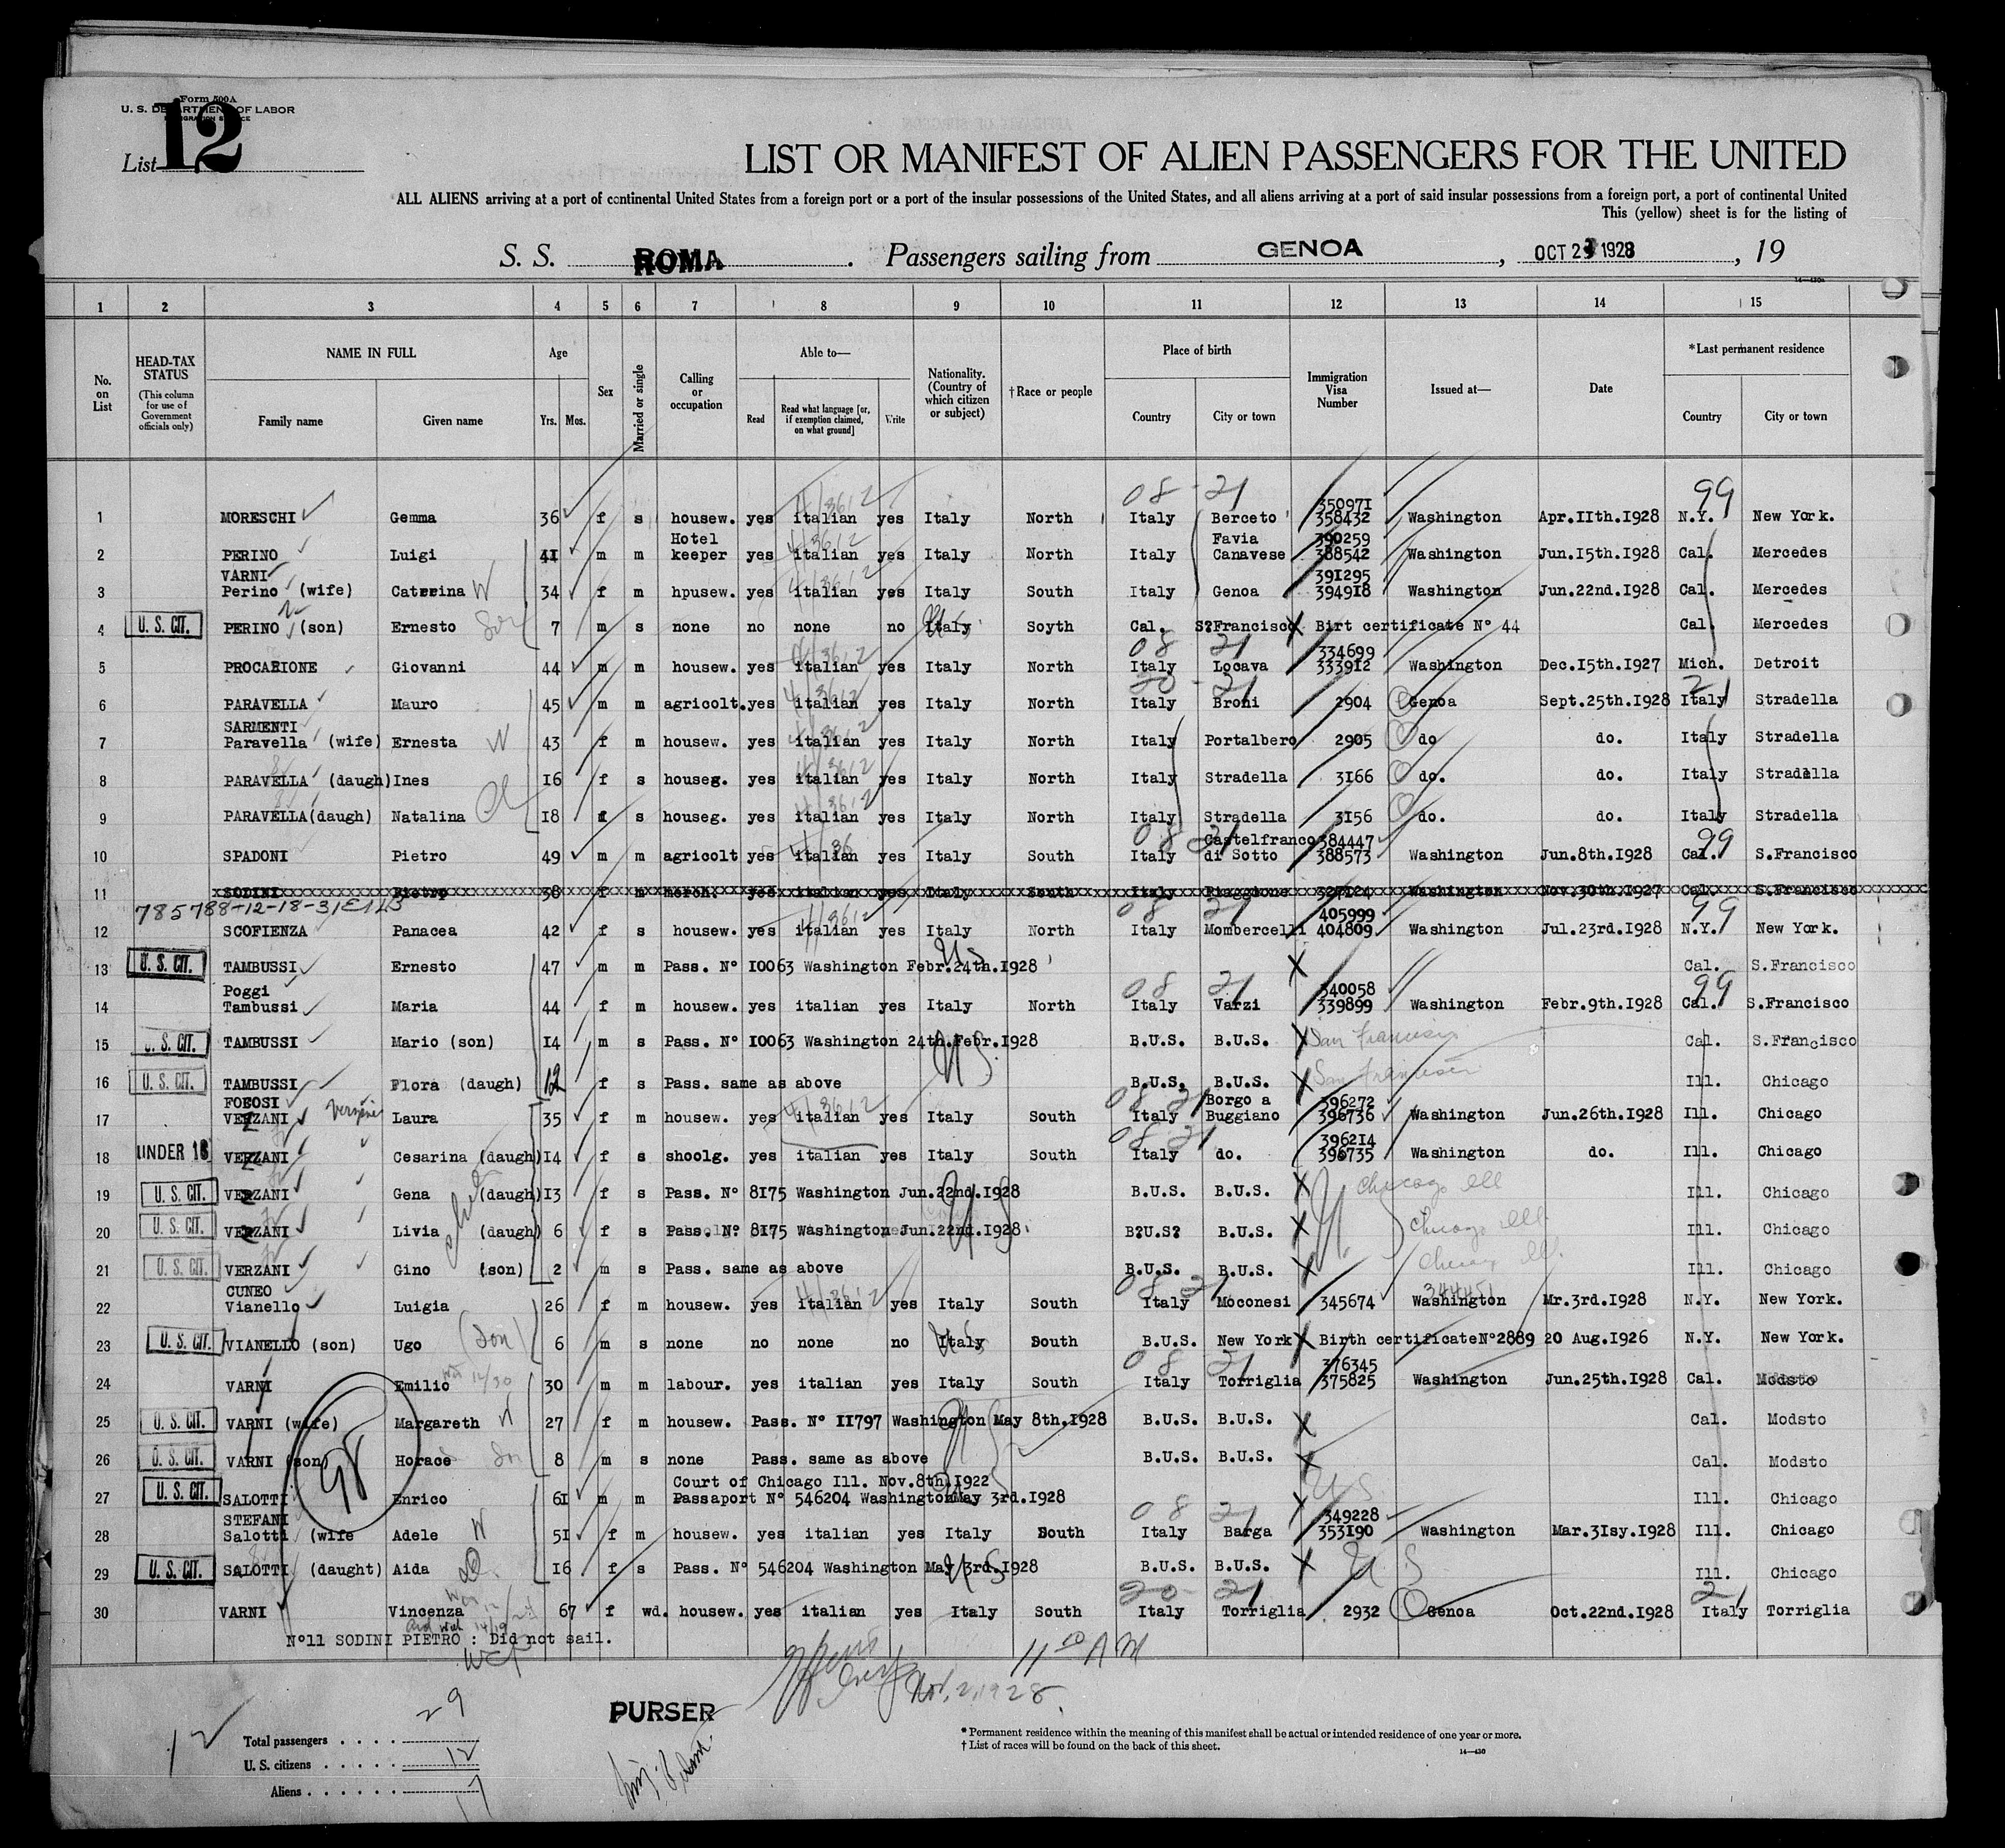 Form 500A
U. S. DEPARTMENT OF LABOR
List 12
LIST OR MANIFEST OF ALIEN PASSENGERS FOR THE UNITED
ALL ALIENS arriving at a port of continental United States from a foreign port or a port of the insular possessions of the United States, and all aliens arriving at a port of said insular possessions from a foreign port, a port of continental United
This (yellow) sheet is for the listing of
S. S. ROMA. Passengers sailing from GENOA, OCT 23 1928, 19
14—430a
1 2 3 4 5 6 7 8 9 10 11 12 13 14 15
No. on List
HEAD-TAX STATUS (This column for use of Government officials only)
NAME IN FULL Family name Given name
Age Yrs. Mos.
Sex
Married or single
Calling or occupation
Able to— Read Read what language [or, if exemption claimed, on what ground] Write
Nationality. (Country of which citizen or subject)
†Race or people
Place of birth Country City or town
Immigration Visa Number
Issued at—
Date
*Last permanent residence Country City or town
08 - 21 350971 99
1 MORESCHI Gemma 36 f s housew. yes italian yes Italy North Italy Berceto 358432 Washington Apr.11th.1928 N.Y. New York.
Hotel Favia 390259
2 PERINO Luigi 41 m m keeper yes italian yes Italy North Italy Canavese 388542 Washington Jun.15th.1928 Cal. Mercedes
VARNI 391295
3 Perino (wife) Caterina W 34 f m hpusew. yes italian yes Italy South Italy Genoa 394918 Washington Jun.22nd.1928 Cal. Mercedes
4 U. S. CIT. PERINO (son) Ernesto Son 7 m s none no none no Italy Soyth Cal. S?Francisco X Birt certificate Nº 44 Cal. Mercedes
08 21 334699
5 PROCARIONE Giovanni 44 m m housew. yes italian yes Italy North Italy Locava 333912 Washington Dec.15th.1927 Mich. Detroit
20 - 21 21
6 PARAVELLA Mauro 45 m m agricolt. yes italian yes Italy North Italy Broni 2904 Genoa Sept.25th.1928 Italy Stradella
SARMENTI
7 Paravella (wife) Ernesta W 43 f m housew. yes italian yes Italy North Italy Portalbero 2905 do do. Italy Stradella
8 PARAVELLA (daugh) Ines 16 f s houseg. yes italian yes Italy North Italy Stradella 3166 do. do. Italy Stradella
9 PARAVELLA(daugh) Natalina 18 f s houseg. yes italian yes Italy North Italy Stradella 3156 do. do. Italy Stradella
08 21 Castelfranco 384447 99
10 SPADONI Pietro 49 m m agricolt yes italian yes Italy South Italy di Sotto 388573 Washington Jun.8th.1928 Cal. S.Francisco
11 SODINI Pietro 38 f m merch. yes italian yes Italy South Italy Piaggione 327124 Washington Nov.30th.1927 Cal. S.Francisco
08 21 405999 99
12 SCOFIENZA Panacea 42 f s housew. yes italian yes Italy North Italy Mombercelli 404809 Washington Jul.23rd.1928 N.Y. New York.
13 U. S. CIT. TAMBUSSI Ernesto 47 m m Pass. Nº 10063 Washington Febr.24th.1928 X Cal. S.Francisco
Poggi 08 21 340058 99
14 Tambussi Maria 44 f m housew. yes italian yes Italy North Italy Varzi 339899 Washington Febr.9th.1928 Cal. S.Francisco
15 U. S. CIT. TAMBUSSI Mario (son) 14 m s Pass. Nº 10063 Washington 24th.Febr.1928 B.U.S. B.U.S. X San Francisco Cal. S.Francisco
16 U. S. CIT. TAMBUSSI Flora (daugh) 12 f s Pass. same as above B.U.S. B.U.S. X San Francisco Ill. Chicago
FOBOSI 08 21 Borgo a 396272
17 VERZANI Verzani Laura 35 f m housew. yes italian yes Italy South Italy Buggiano 396736 Washington Jun.26th.1928 Ill. Chicago
08 21 396214
18 UNDER 16 VERZANI Cesarina (daugh) 14 f s shoolg. yes italian yes Italy South Italy do. 396735 Washington do. Ill. Chicago
19 U. S. CIT. VERZANI Gena (daugh) 13 f s Pass. Nº 8175 Washington Jun.22nd.1928 B.U.S. B.U.S. X Chicago Ill Ill. Chicago
20 U. S. CIT. VERZANI Livia (daugh) 6 f s Pass. Nº 8175 Washington Jun.22nd.1928 B?U.S? B.U.S. X Chicago Ill Ill. Chicago
21 U. S. CIT. VERZANI Gino (son) 2 m s Pass. same as above B.U.S. B.U.S. X Chicago Ill. Ill. Chicago
CUNEO 08 21 344451
22 Vianello Luigia 26 f m housew. yes italian yes Italy South Italy Moconesi 345674 Washington Mr.3rd.1928 N.Y. New York.
23 U. S. CIT. VIANELLO (son) Ugo (Son) 6 m s none no none no Italy South B.U.S. New York X Birth certificateNº2889 20 Aug.1926 N.Y. New York.
08 21 376345
24 VARNI Emilio 30 m m labour. yes italian yes Italy South Italy Torriglia 375825 Washington Jun.25th.1928 Cal. Modsto
25 U. S. CIT. VARNI (wife) Margareth W 27 f m housew. Pass. Nº 11797 Washington May 8th.1928 B.U.S. B.U.S. X Cal. Modsto
26 U. S. CIT. VARNI (son) Horace Son 8 m s none Pass. same as above B.U.S. B.U.S. X Cal. Modsto
98
Court of Chicago Ill. Nov.8th.1922
27 U. S. CIT. SALOTTI Enrico 61 m m Passaport Nº 546204 Washington May 3rd.1928 X US Ill. Chicago
STEFANI 08 21 349228
28 Salotti (wife Adele W 51 f m housew. yes italian yes Italy South Italy Barga 353190 Washington Mar.31sy.1928 Ill. Chicago
29 U. S. CIT. SALOTTI (daught) Aida 16 f s Pass. Nº 546204 Washington May 3rd.1928 B.U.S. B.U.S. X U S Ill. Chicago
20 - 21 21
30 VARNI Vincenza 67 f wd. housew. yes italian yes Italy South Italy Torriglia 2932 Genoa Oct.22nd.1928 Italy Torriglia
Nº11 SODINI PIETRO : Did not sail.
11 00 A M
Nov. 2, 1928.
PURSER
12
Total passengers . . . . 29
U. S. citizens . . . . . 12
Aliens . . . . . . 17
* Permanent residence within the meaning of this manifest shall be actual or intended residence of one year or more.
† List of races will be found on the back of this sheet.
14—430